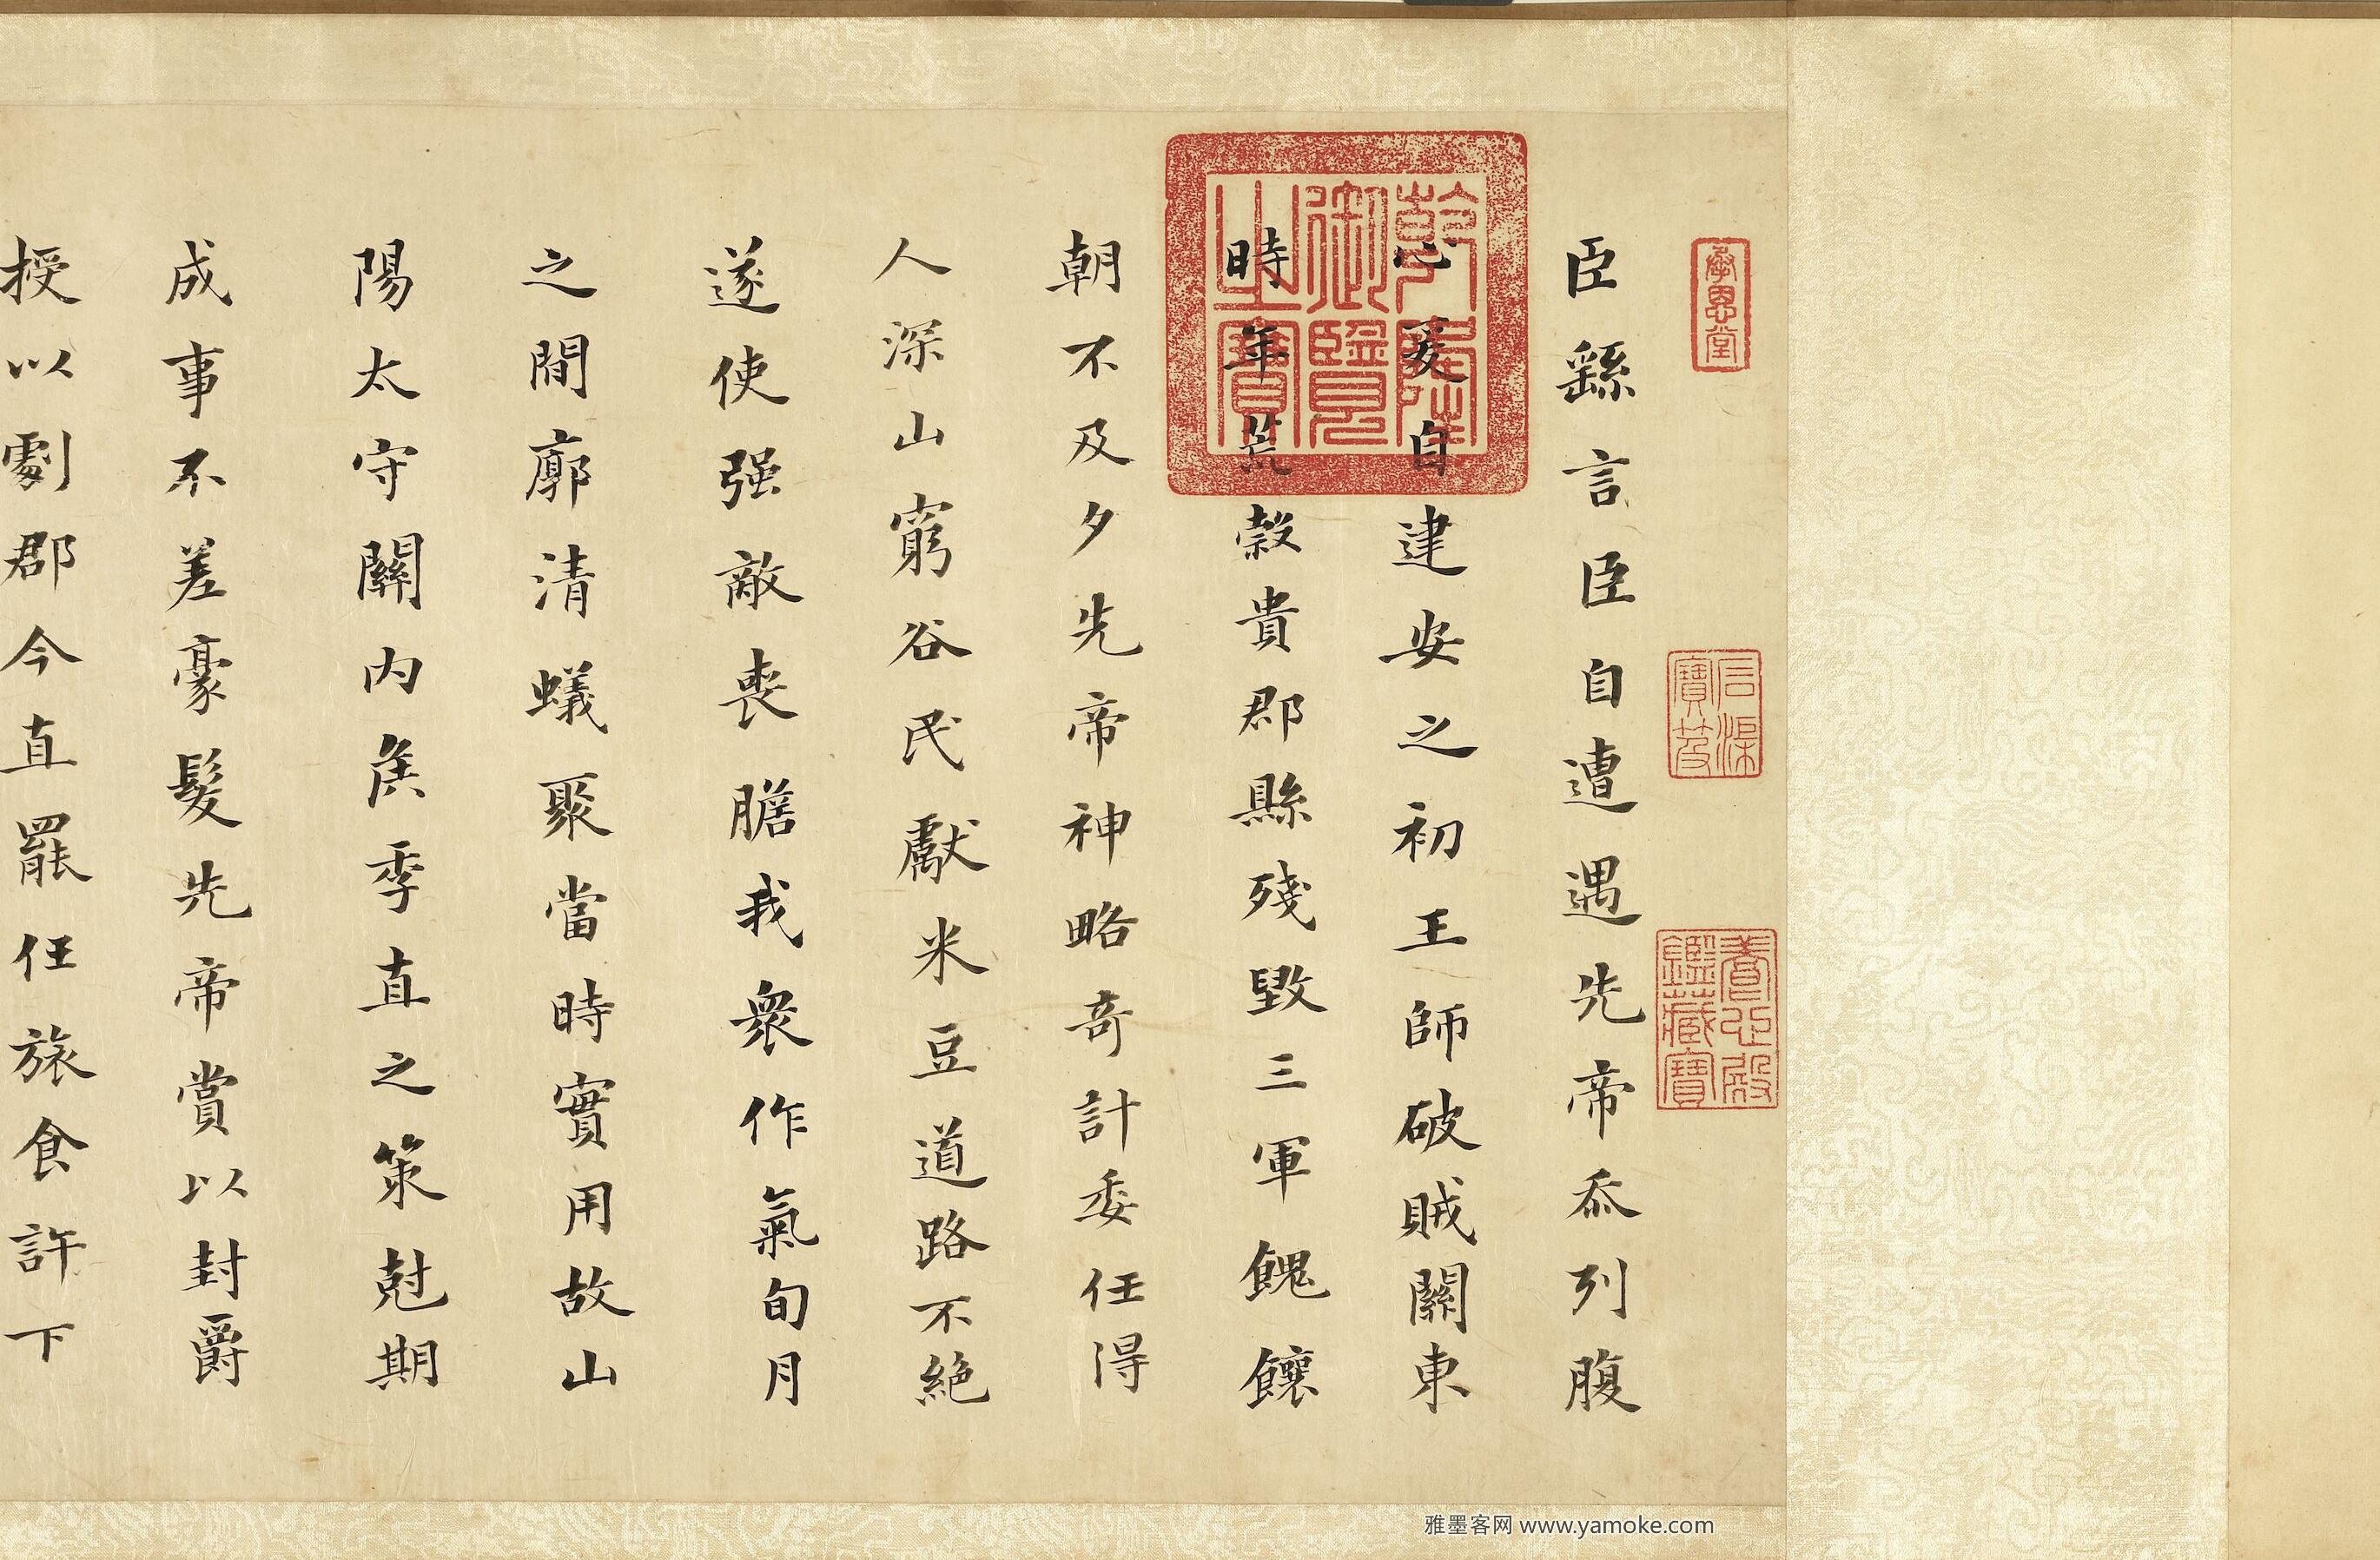 臣繇言臣自遭遇先帝忝列腹
心爰自建安之初王師破賊關東
時年荒榖貴郡縣殘毀三軍餽饟
朝不及夕先帝神略奇計委任得
人深山窮谷民獻米豆道路不絕
遂使强敵喪膽我衆作氣旬月
之間廓清蟻聚當時實用故山
陽太守關內侯季直之策尅期
成事不差豪髮先帝賞以封爵
授以劇郡今直罷任旅食許下
承恩堂
石渠寶笈
養心殿鑑藏寶
乾隆御覽之寶
雅墨客网 www.yamoke.com